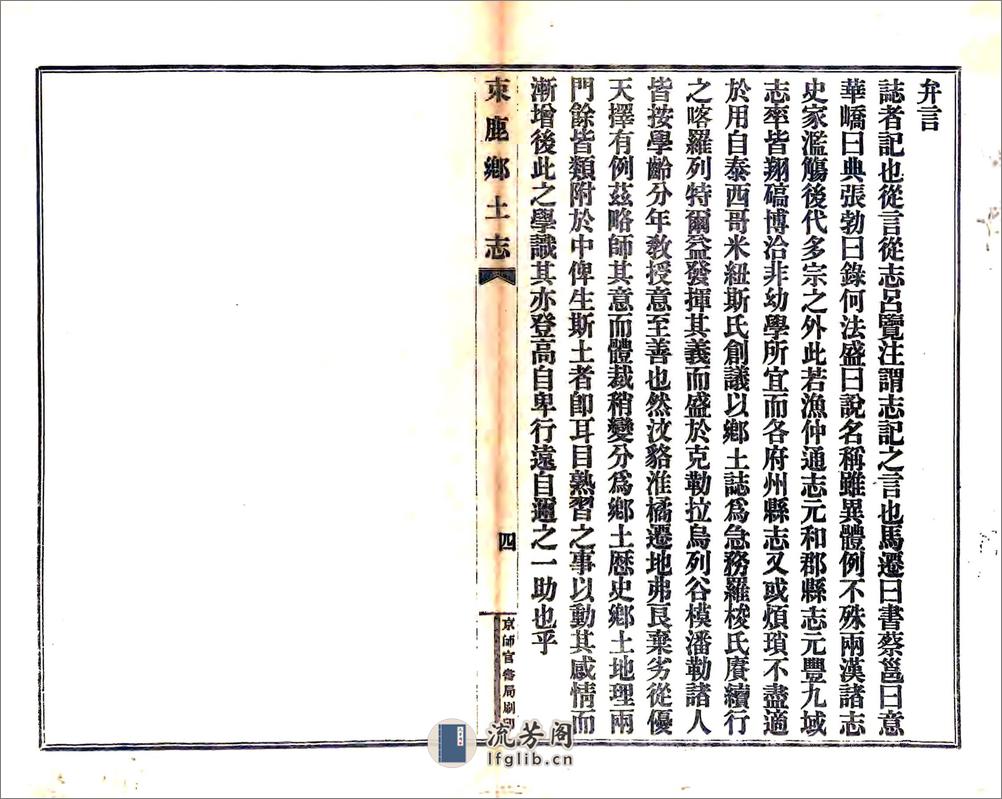 弁言
誌者記也從言從志呂覽注謂志記之言也馬遷曰書蔡邕曰意
華嶠曰典張勃曰錄何法盛曰說名稱雖異體例不殊兩漢諸志
史家濫觴後代多宗之外此若漁仲通志元和郡縣志元豐九域
志率皆翔碻博洽非幼學所宜而各府州縣志又或煩瑣不盡適
於用自泰西哥米紐斯氏創議以鄉土誌爲急務羅梭氏賡續行
之喀羅列特爾益發揮其義而盛於克勒拉烏列谷模潘勒諸人
皆按學齡分年教授意至善也然汶貉淮橘遷地弗良棄劣從優
天擇有例茲略師其意而體裁稍變分爲鄉土歷史鄉土地理兩
門餘皆類附於中俾生斯土者卽耳目熟習之事以動其感情而
漸增後此之學識其亦登高自卑行遠自邇之一助也乎
束鹿鄉土志
四
京師官書局刷印
流芳阁
lfglib.cn